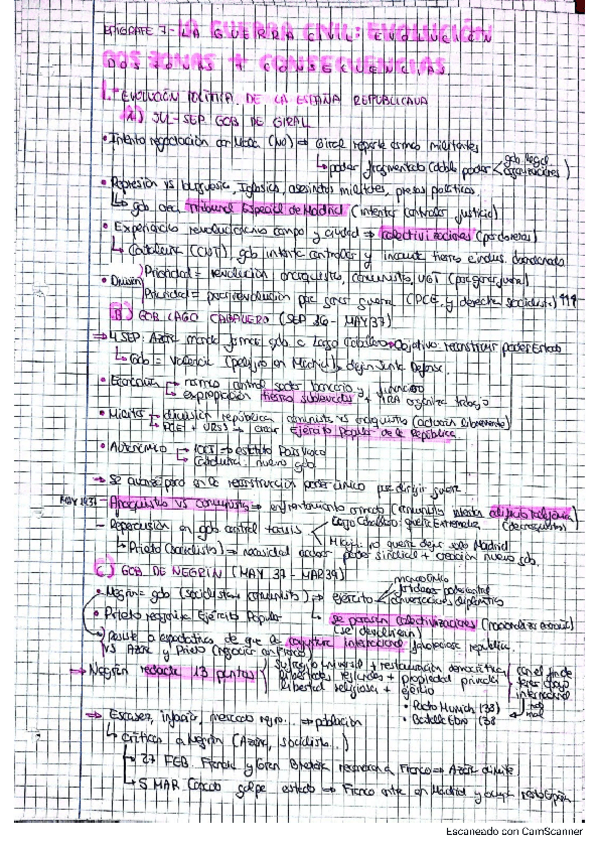 EPÍGRAFE 7- LA GUERRA CIVIL: EVOLUCIÓN
DOS ZONAS + CONSECUENCIAS
1.- EVOLUCIÓN POLÍTICA DE LA ESPAÑA REPUBLICANA
A) JUL-SEP GOB DE GIRAL
• Intento negociación con Mola (NO) ⇒ Giral reparte armas militares
↳ poder fragmentado (doble poder < gob legal organizaciones)
• Represión vs burguesía, Iglesia, asesinatos militares, presos políticos
↳ gob crea Tribunal Especial de Madrid (intenta controlar justicia)
• Experiencia revolucionaria campo y ciudad ⇒ colectivizaciones
↳ Cataluña (CNT), gob intenta controlar y incauta tierras e indus. abandonadas
• División Prioridad = revolución anarquistas, UGT (para ganar guerra)
Prioridad = para ganar guerra (PCE y derecha socialista)
B) GOB LARGO CABALLERO (SEP 36 - MAY 37)
⇒ 4 SEP: Azaña manda formar gob a Largo Caballero • Objetivo: reconstruir poder Estado
↳ Gob = Valencia (peligro en Madrid) dejan Junta Defensa
• Economía → control sector bancario y financiero
→ expropiación tierras sublevados + IRA organiza trabajo
• Milicias → discusión república comunista vs anarquista (actúan libremente)
→ PCE + URSS → crear Ejército Popular de la República
• Autonomía → estatuto País Vasco
→ Cataluña: nuevo gob
→ Se avanza para en la reconstrucción poder único para dirigir guerra
MAY 1937 - Anarquistas vs comunistas ⇒ enfrentamiento armado (comunistas intentan edificio Telefónica)
- Repercusión en gob central
↳ Prieto (socialista) ⇒ necesidad acabar poder sindical + creación nuevo gob
C) GOB DE NEGRÍN (MAY 37 - MAR 39)
• Negrín = gob (socialistas + comunistas) ⇒ ejército mando único
• Prieto reorganiza Ejército Popular
↳ se paran colectivizaciones
• Resistir a expectativa de que la coyuntura internacional favoreciese república
VS Azaña y Prieto (negociar con Franco)
⇒ Negrín redacta 13 puntos Sufragio universal + restauración democrática
libertades regionales + propiedad privada
libertad religiosa + ejército
con el fin de tener apoyo internacional
• Pacto Munich (38)
• Batalla Ebro (38
⇒ Escasez, inflación, mercado negro... ⇒ población
↳ Críticas a Negrín (Azaña, socialistas...)
↳ 27 FEB. Francia y Gran Bretaña reconocen a Franco ⇒ Azaña dimite
↳ 5 MAR Casado golpe estado ⇒ Franco entra en Madrid y ocupa resto Epña
Escaneado con CamScanner